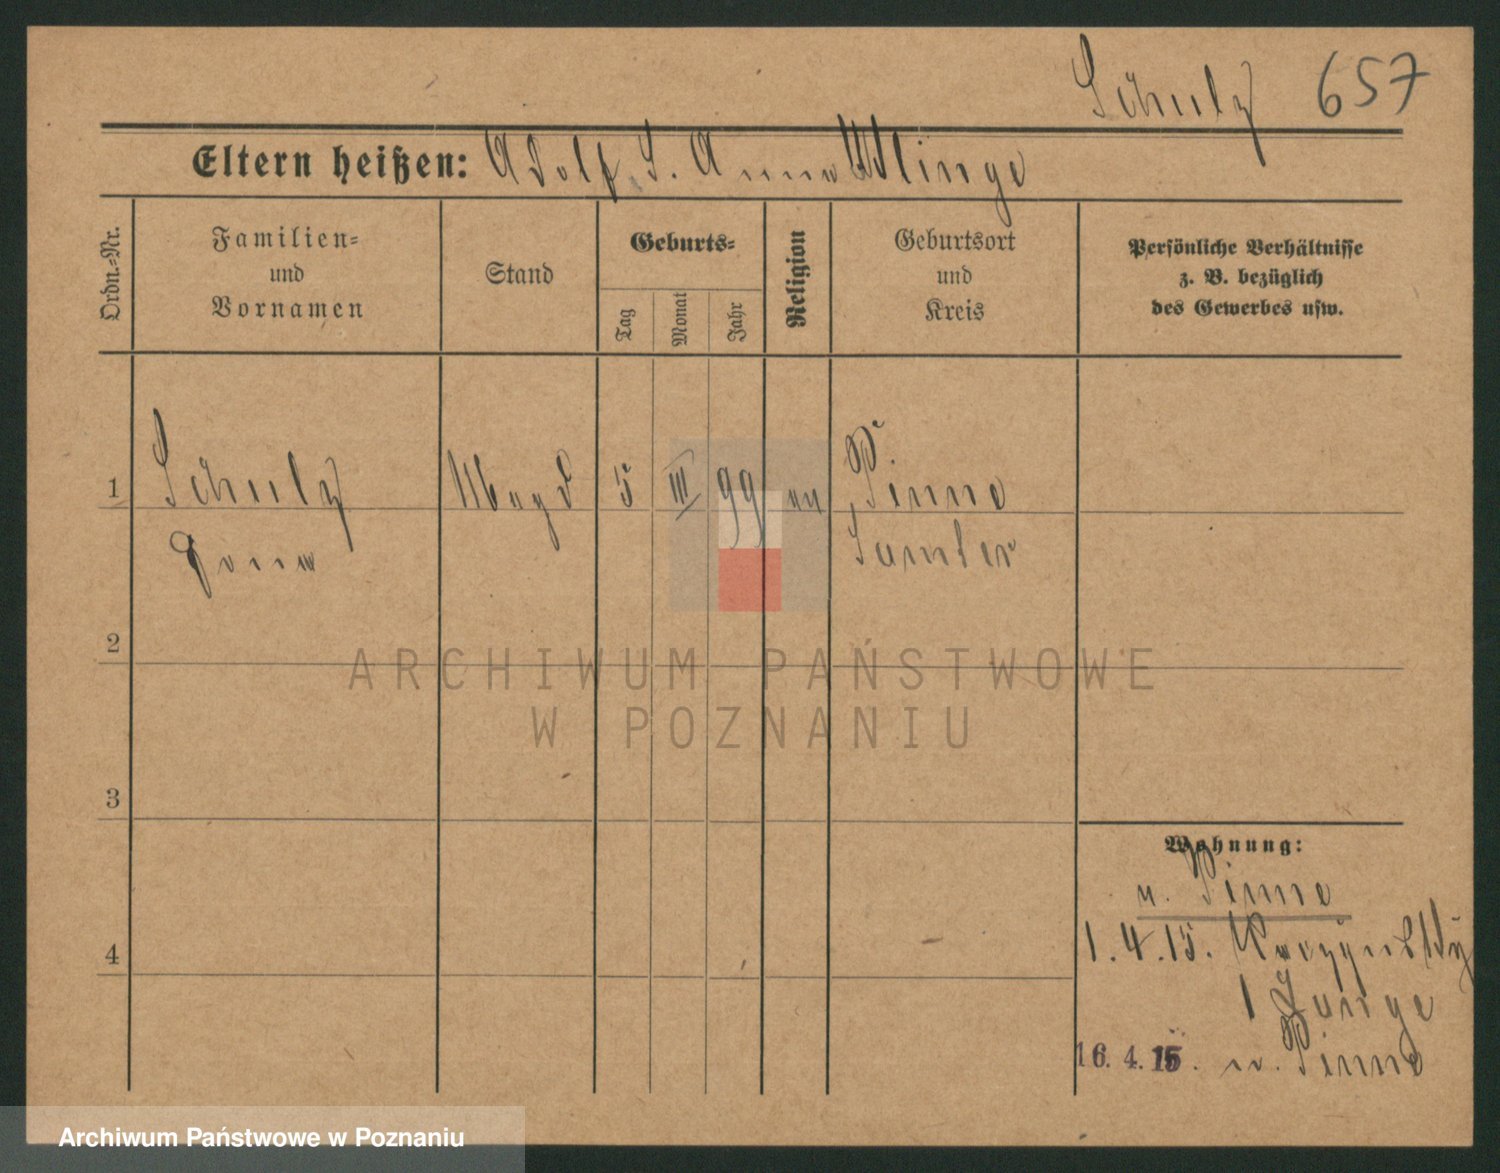 Schulz 657
Eltern heißen: Adolf S. Anna Klinge
Ordn.-Nr.
Familien-
und
Vornamen
Stand
Geburts-
Tag
Monat
Jahr
Religion
Geburtsort
und
Kreis
Persönliche Verhältnisse
z. B. bezüglich
des Gewerbes usw.
1 Schulz Magd 5 III 99 ev Pinne
Samter
2
ARCHIWUM PAŃSTWOWE
W POZNANIU
3
4
Wohnung:
n. Pinne
1.4.15.
1 Junge
16.4.15. n. Pinne
Archiwum Państwowe w Poznaniu